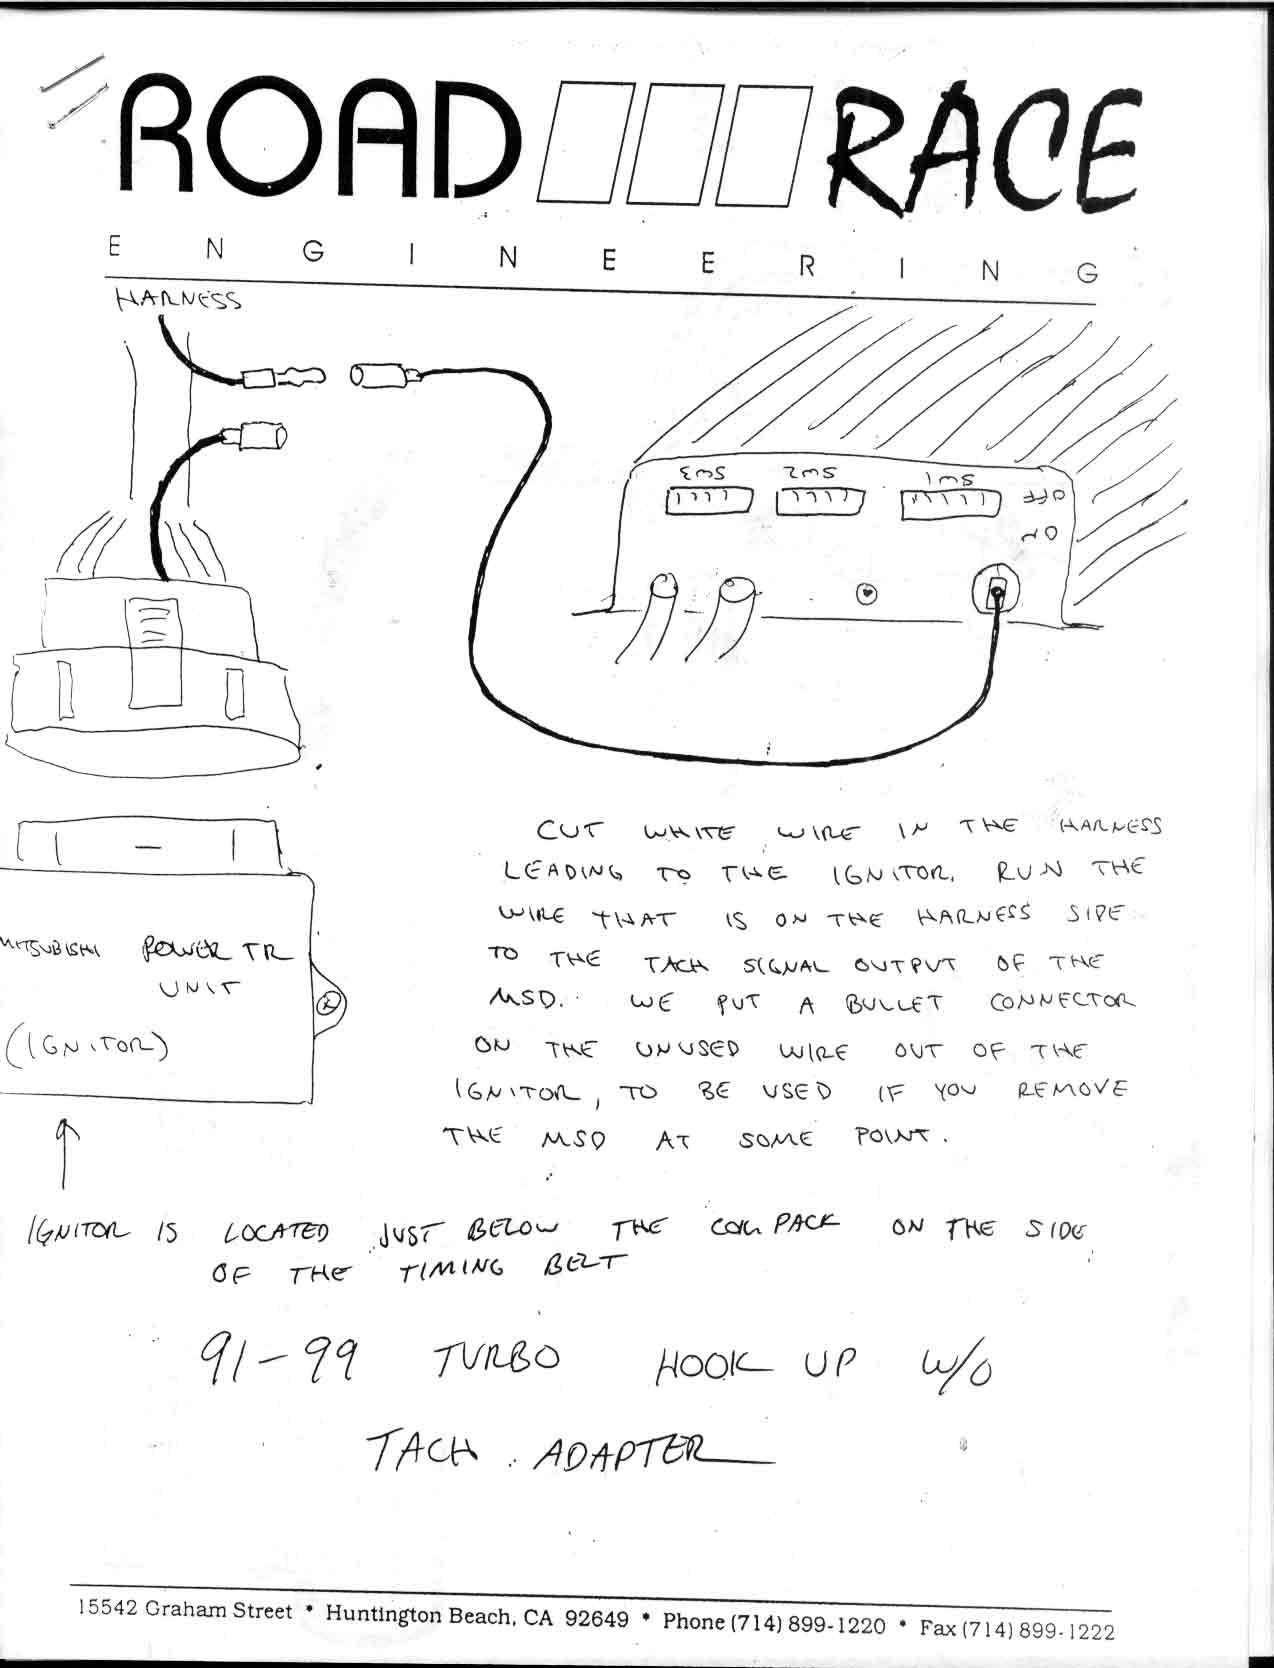 ROAD RACE
ENGINEERING
HARNESS
3mS 2mS 1mS OFF
ON
CUT WHITE WIRE IN THE HARNESS
LEADING TO THE IGNITOR. RUN THE
WIRE THAT IS ON THE HARNESS SIDE
TO THE TACH SIGNAL OUTPUT OF THE
MSD. WE PUT A BULLET CONNECTOR
ON THE UNUSED WIRE OUT OF THE
IGNITOR, TO BE USED IF YOU REMOVE
THE MSD AT SOME POINT.
MITSUBISHI POWER TR
UNIT
(IGNITOR)
IGNITOR IS LOCATED JUST BELOW THE COIL PACK ON THE SIDE
OF THE TIMING BELT
91-99 TURBO HOOK UP W/O
TACH ADAPTER
15542 Graham Street * Huntington Beach, CA 92649 * Phone (714) 899-1220 * Fax (714) 899-1222